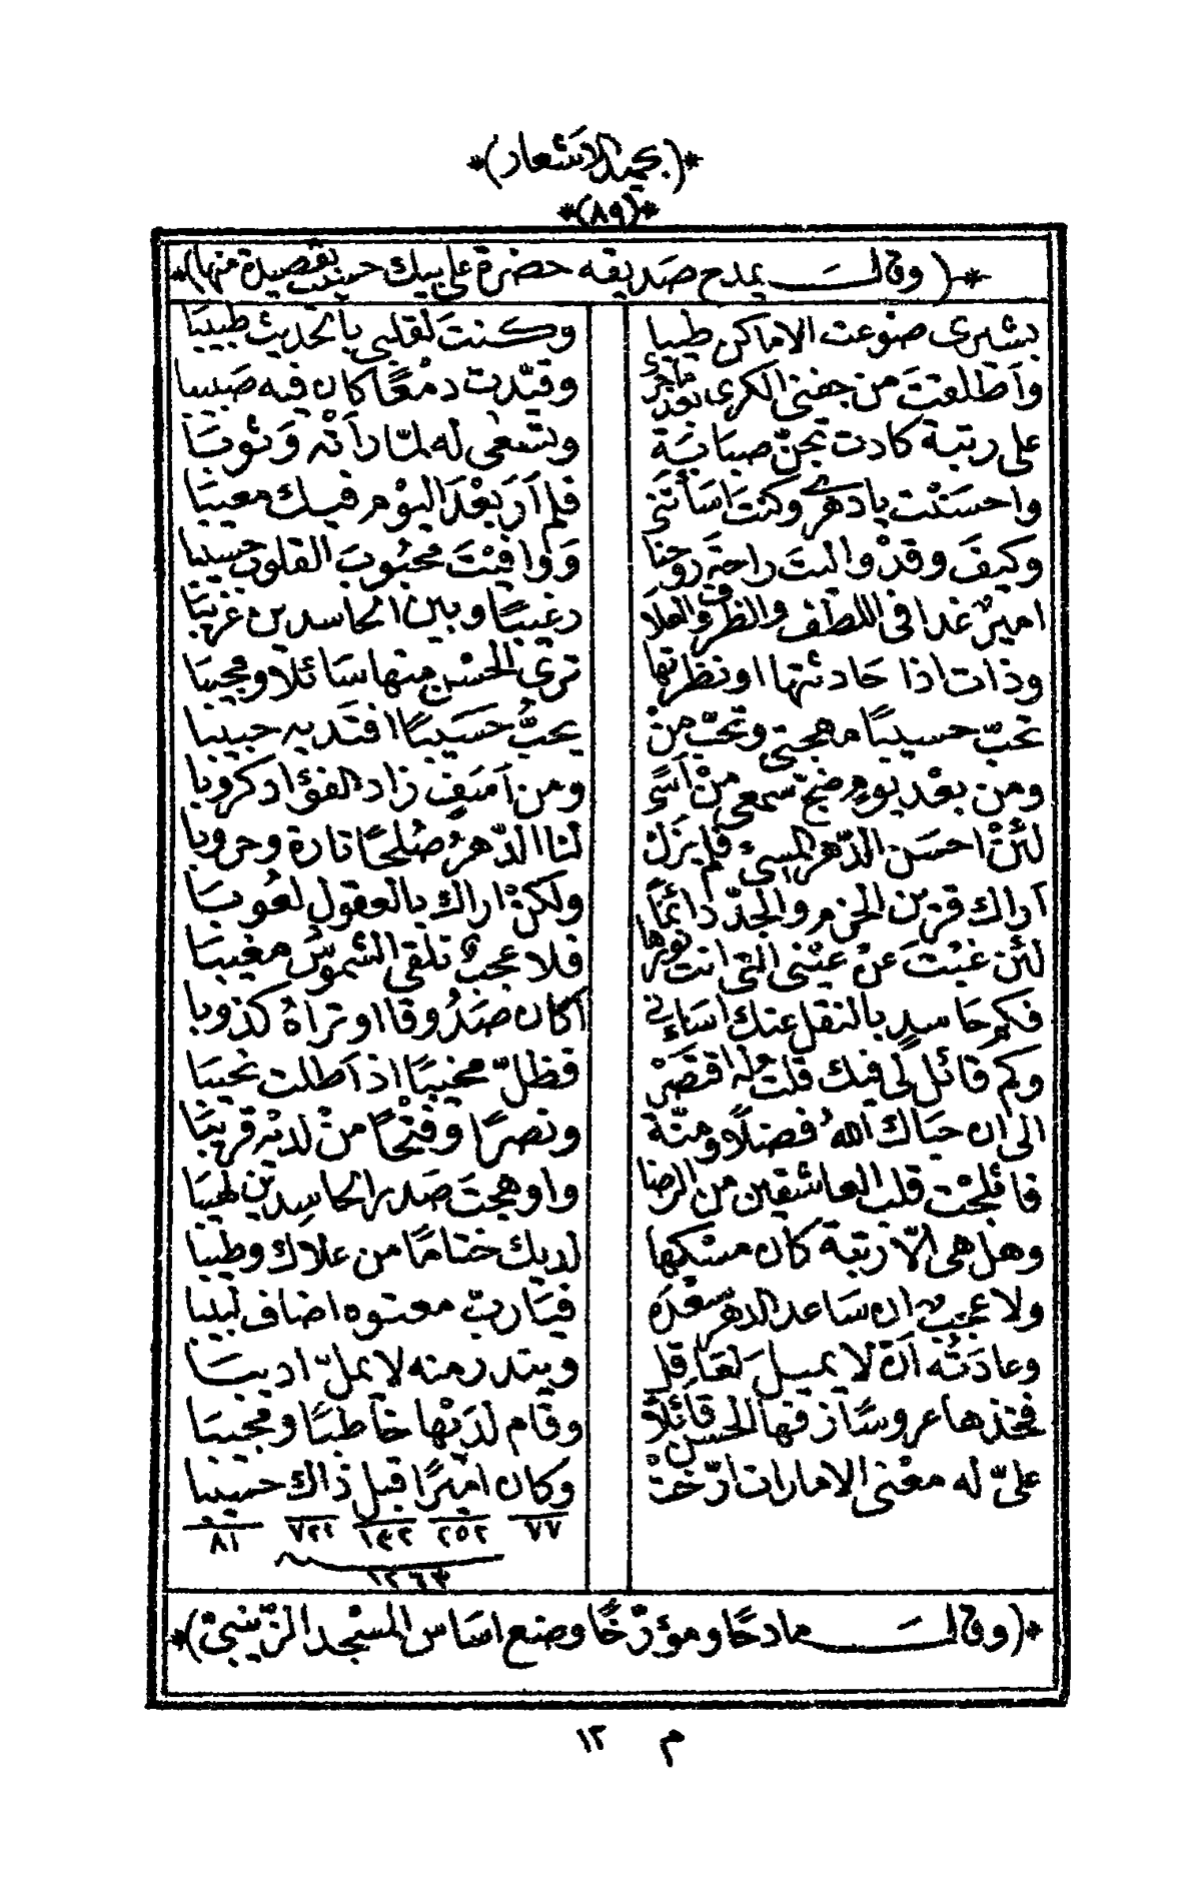 *(بحميد الاشعار)*
*(٨٩)*
*(وقال يمدح صديقه حضرة على بيك حسيب بقصيدة منها)*
بشرى ضوعت الاماكن طيبا وكنت لقلبي بالحديث طبيبا
وأطلعت من جفنى الكرى بعد وقيّدت دمعًا كان فيه صبيبا
على رتبة كادت تجنّ صبابة وتسعى له لمّا رأته وثوبا
واحسنت يا دهرى وكنت اسأتنى فلم أر بعد اليوم فيك معيبا
وكيف وقد واليت راحة روحنا ووافيت محبوب القلوب حسيبا
امير غدا فى اللطف والظرف والعلا رغيبا وبين الحاسدين غريبا
وذات اذا حادثتها او نظرتها ترى الحسن منها سائلا ومجيبا
تحبّ حسيبًا مهجتى وتحبّ من يحبّ حسيبًا افتديه حبيبا
ومن بعد يوم ضجّ سمعى من أسًى ومن أسف زاد الفؤاد كروبا
لئن احسن الدّهر المسىء فلم يزل لنا الدّهر صلحًا تارة وحروبا
أراك قرين الحزم والجدّ دائمًا ولكن اراك بالعقول لعوبا
لئن غبت عن عينى التى انت نورها فلا عجب تلقى الشموس مغيبا
فكم حاسد بالنقل عنك اساءنى أكان صدوقا او تراه كذوبا
وكم قائل لى فيك قلت له اقتصر فظلّ مخيبًا اذ أطلت نحيبا
الى ان حباك الله فضلًا ومنّة ونصرًا وفتحًا من لدنه قريبا
فاثلجت قلب العاشقين من الرضا واوهجت صدر الحاسدين لهيبا
وهل هى الّا رتبة كان مسكها لديك ختامًا من علاك وطيبا
ولا عجب ان ساعد الدهر سعده فيا ربّ معتوه اضاف لبيبا
وعادته أن لا يميل لعاقل ويبتدر منه لا يملّ اديبا
فخذها عروسًا زفها الحسن قائلًا وقام لديها خاطبًا ومجيبا
علىّ له معنى الامارات ارّخت وكان اميرًا قبل ذاك حسيبا
٧٧ ٢٥٢ ١٣٢ ٧٢١ ٨١
١٢٦٣
*(وقال مادحًا ومؤرّخًا وضع اساس المسجد الزينبىّ)*
م ١٢